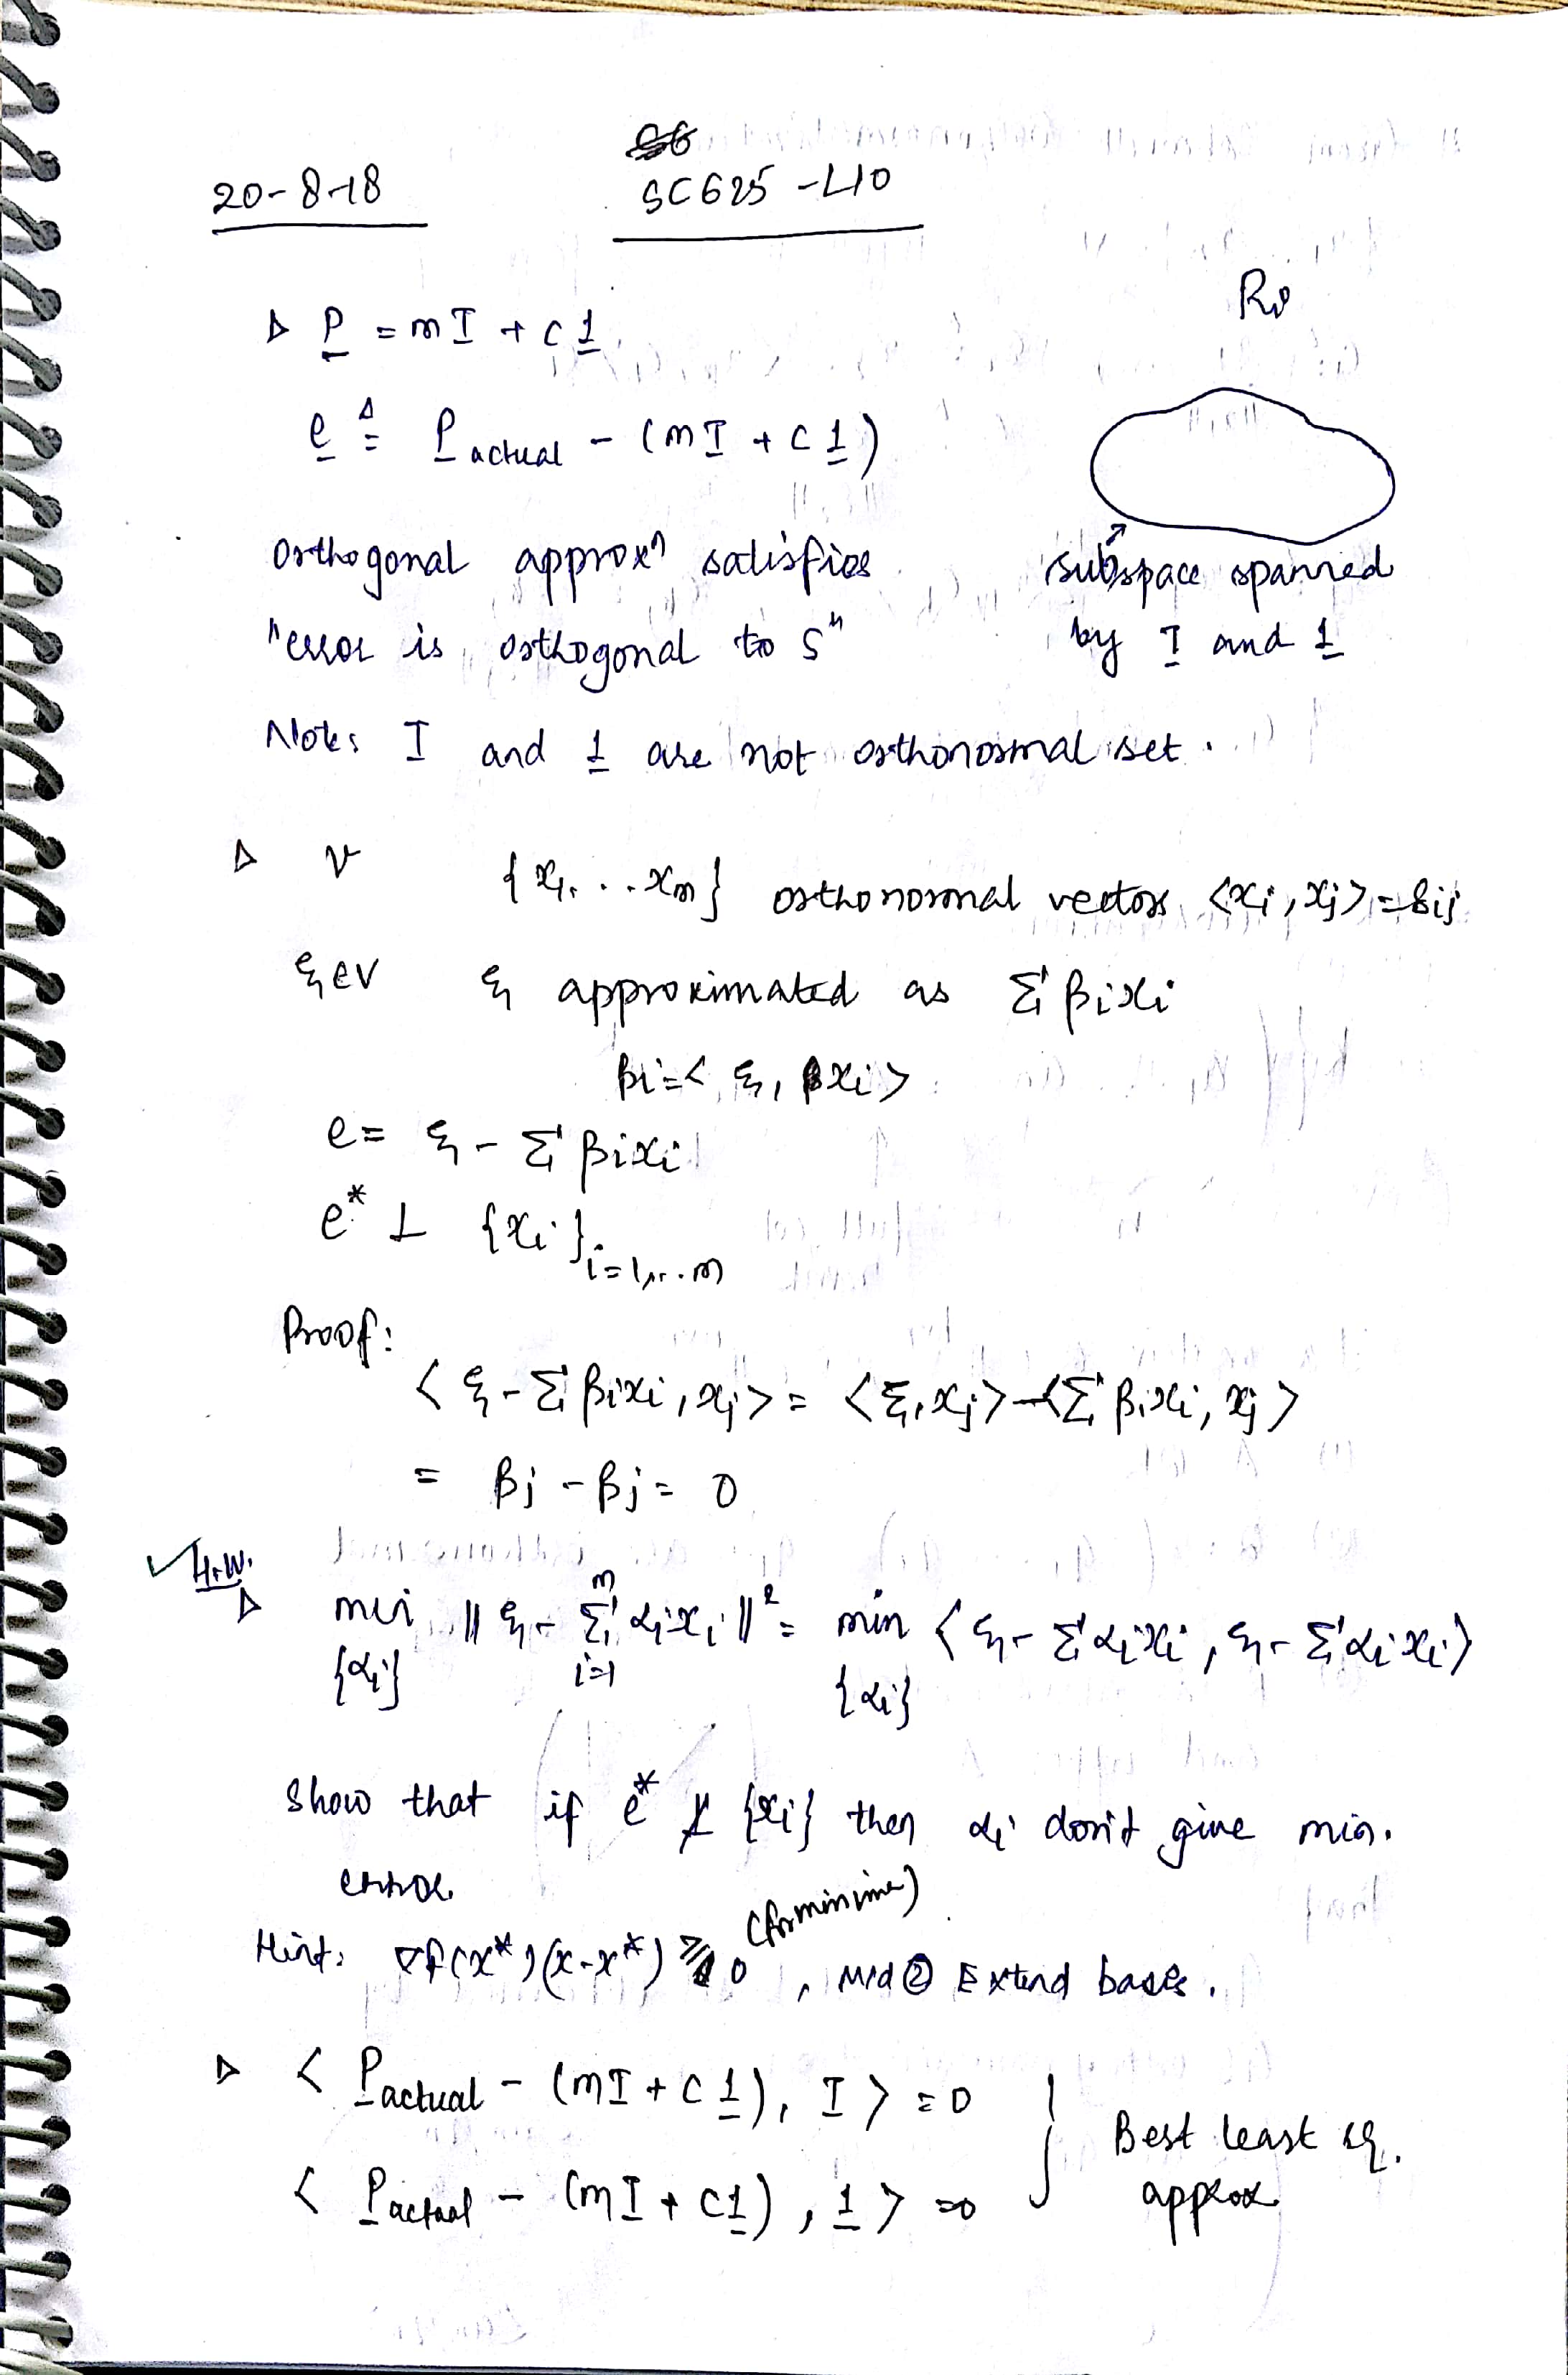 20-8-18
SC625 -L10
▷ P = mI + c1
e ≜ Pactual - (mI + c1)
Orthogonal approxⁿ satisfies
"error is orthogonal to S"
subspace spanned
by I and 1
Note: I and 1 are not orthonormal set.
▷ V {x₁, ... xm} orthonormal vectors <xi, xj> = δij
ξ∈V ξ approximated as Σ βixi
βi = < ξ, xi >
e = ξ - Σ βixi
e* ⊥ {xi}i=1,...m
Proof:
< ξ - Σ βixi, xj > = < ξ, xj > - < Σ βixi, xj >
= βj - βj = 0
✓ H.W.
▷ min{αi} || ξ - Σᵐi=1 αixi ||² = min{αi} < ξ - Σ αixi, ξ - Σ αixi >
Show that if e* ⊥̸ {xi} then αi don't give min.
error
Hint: ∇f(x*)(x-x*) ≥ 0 (for minima), ② Extend bases.
▷ < Pactual - (mI + c1), I > = 0
< Pactual - (mI + c1), 1 > = 0
Best least sq.
approx